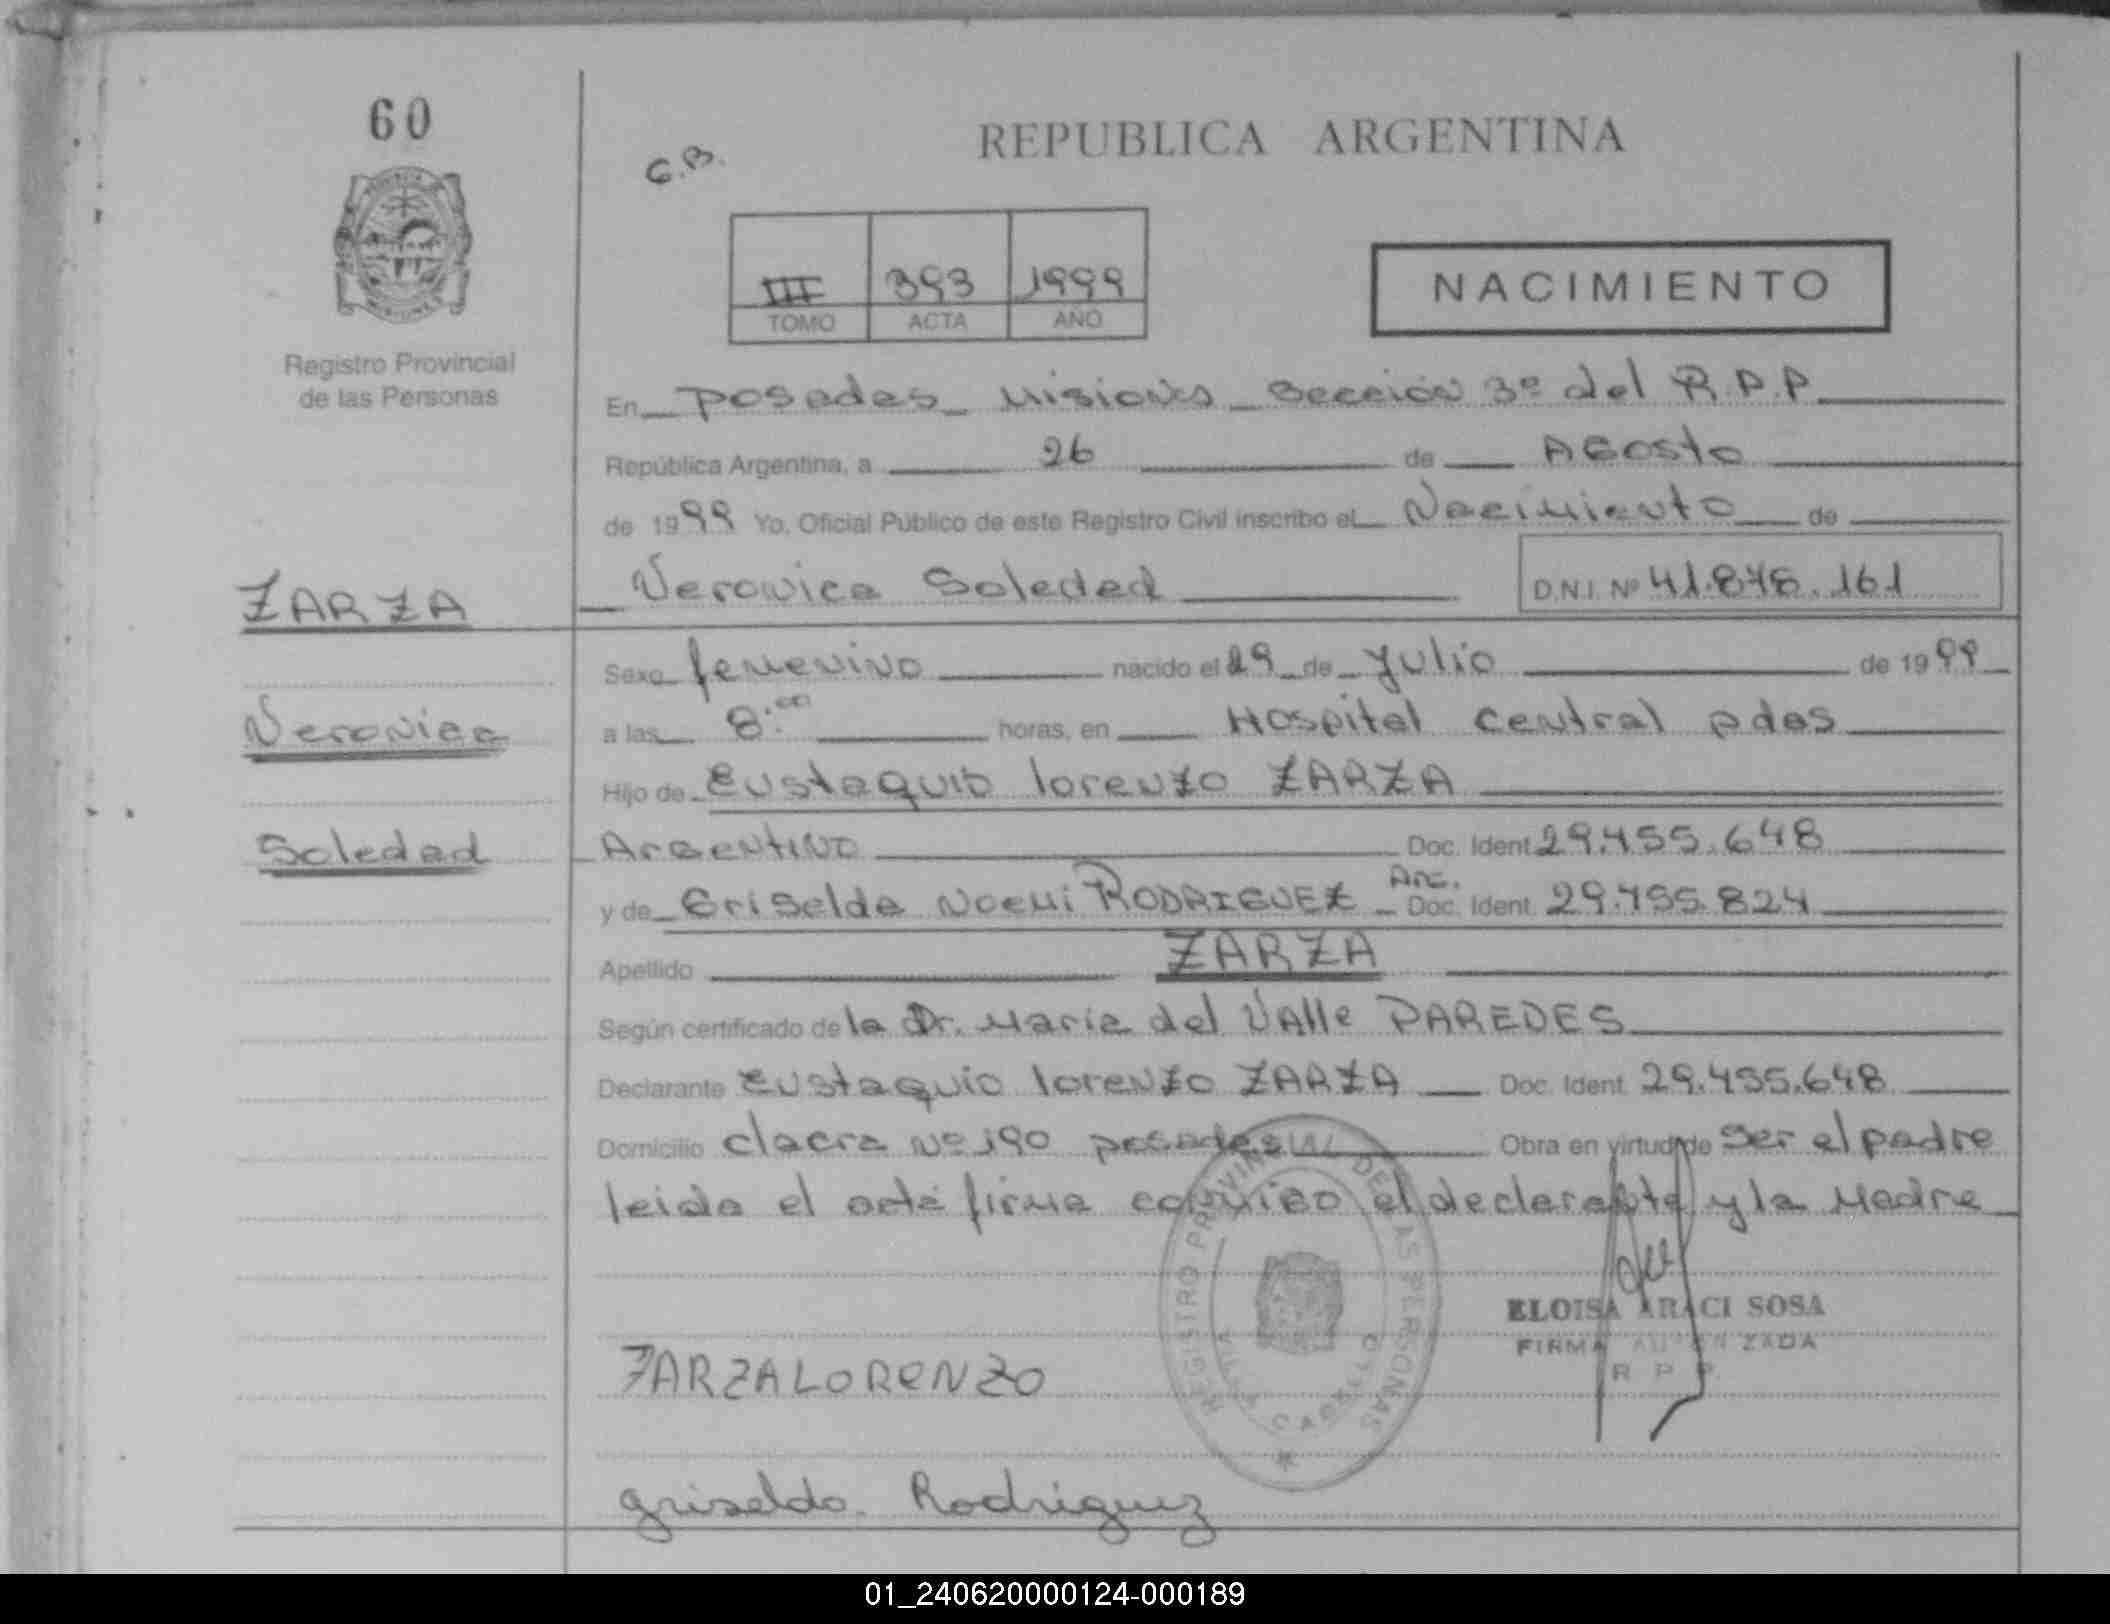 60
G.B.
REPUBLICA ARGENTINA
III 393 1999
TOMO ACTA AÑO
NACIMIENTO
Registro Provincial
de las Personas
En Posadas Misiones Sección 3º del R.P.P
República Argentina, a 26 de Agosto
de 1999 Yo, Oficial Público de este Registro Civil inscribo el Nacimiento de
ZARZA
Veronica Soledad D.N.I. Nº 41.848.161
Sexo femenino nacido el 29 de Julio de 1999
Veronica
a las 8:00 horas, en Hospital Central pdas
Hijo de Eustaquio lorenzo ZARZA
Soledad
Argentino Doc. Ident 29.455.648
y de Griselda Noemi RODRIGUEZ Arg. Doc. Ident. 29.455.824
Apellido ZARZA
Según certificado de la Dr. Maria del VAlle PAREDES
Declarante Eustaquio lorenzo ZARZA Doc. Ident. 29.455.648
Domicilio chacra Nº 190 posadas Obra en virtud de ser el padre
leida el acta firma conmigo el declarante y la Madre
REGISTRO PROVINCIAL DE LAS PERSONAS
ELOISA ARACI SOSA
FIRMA AUTORIZADA
R P P
ZARZA LORENZO
Griselda Rodriguez
01_240620000124-000189